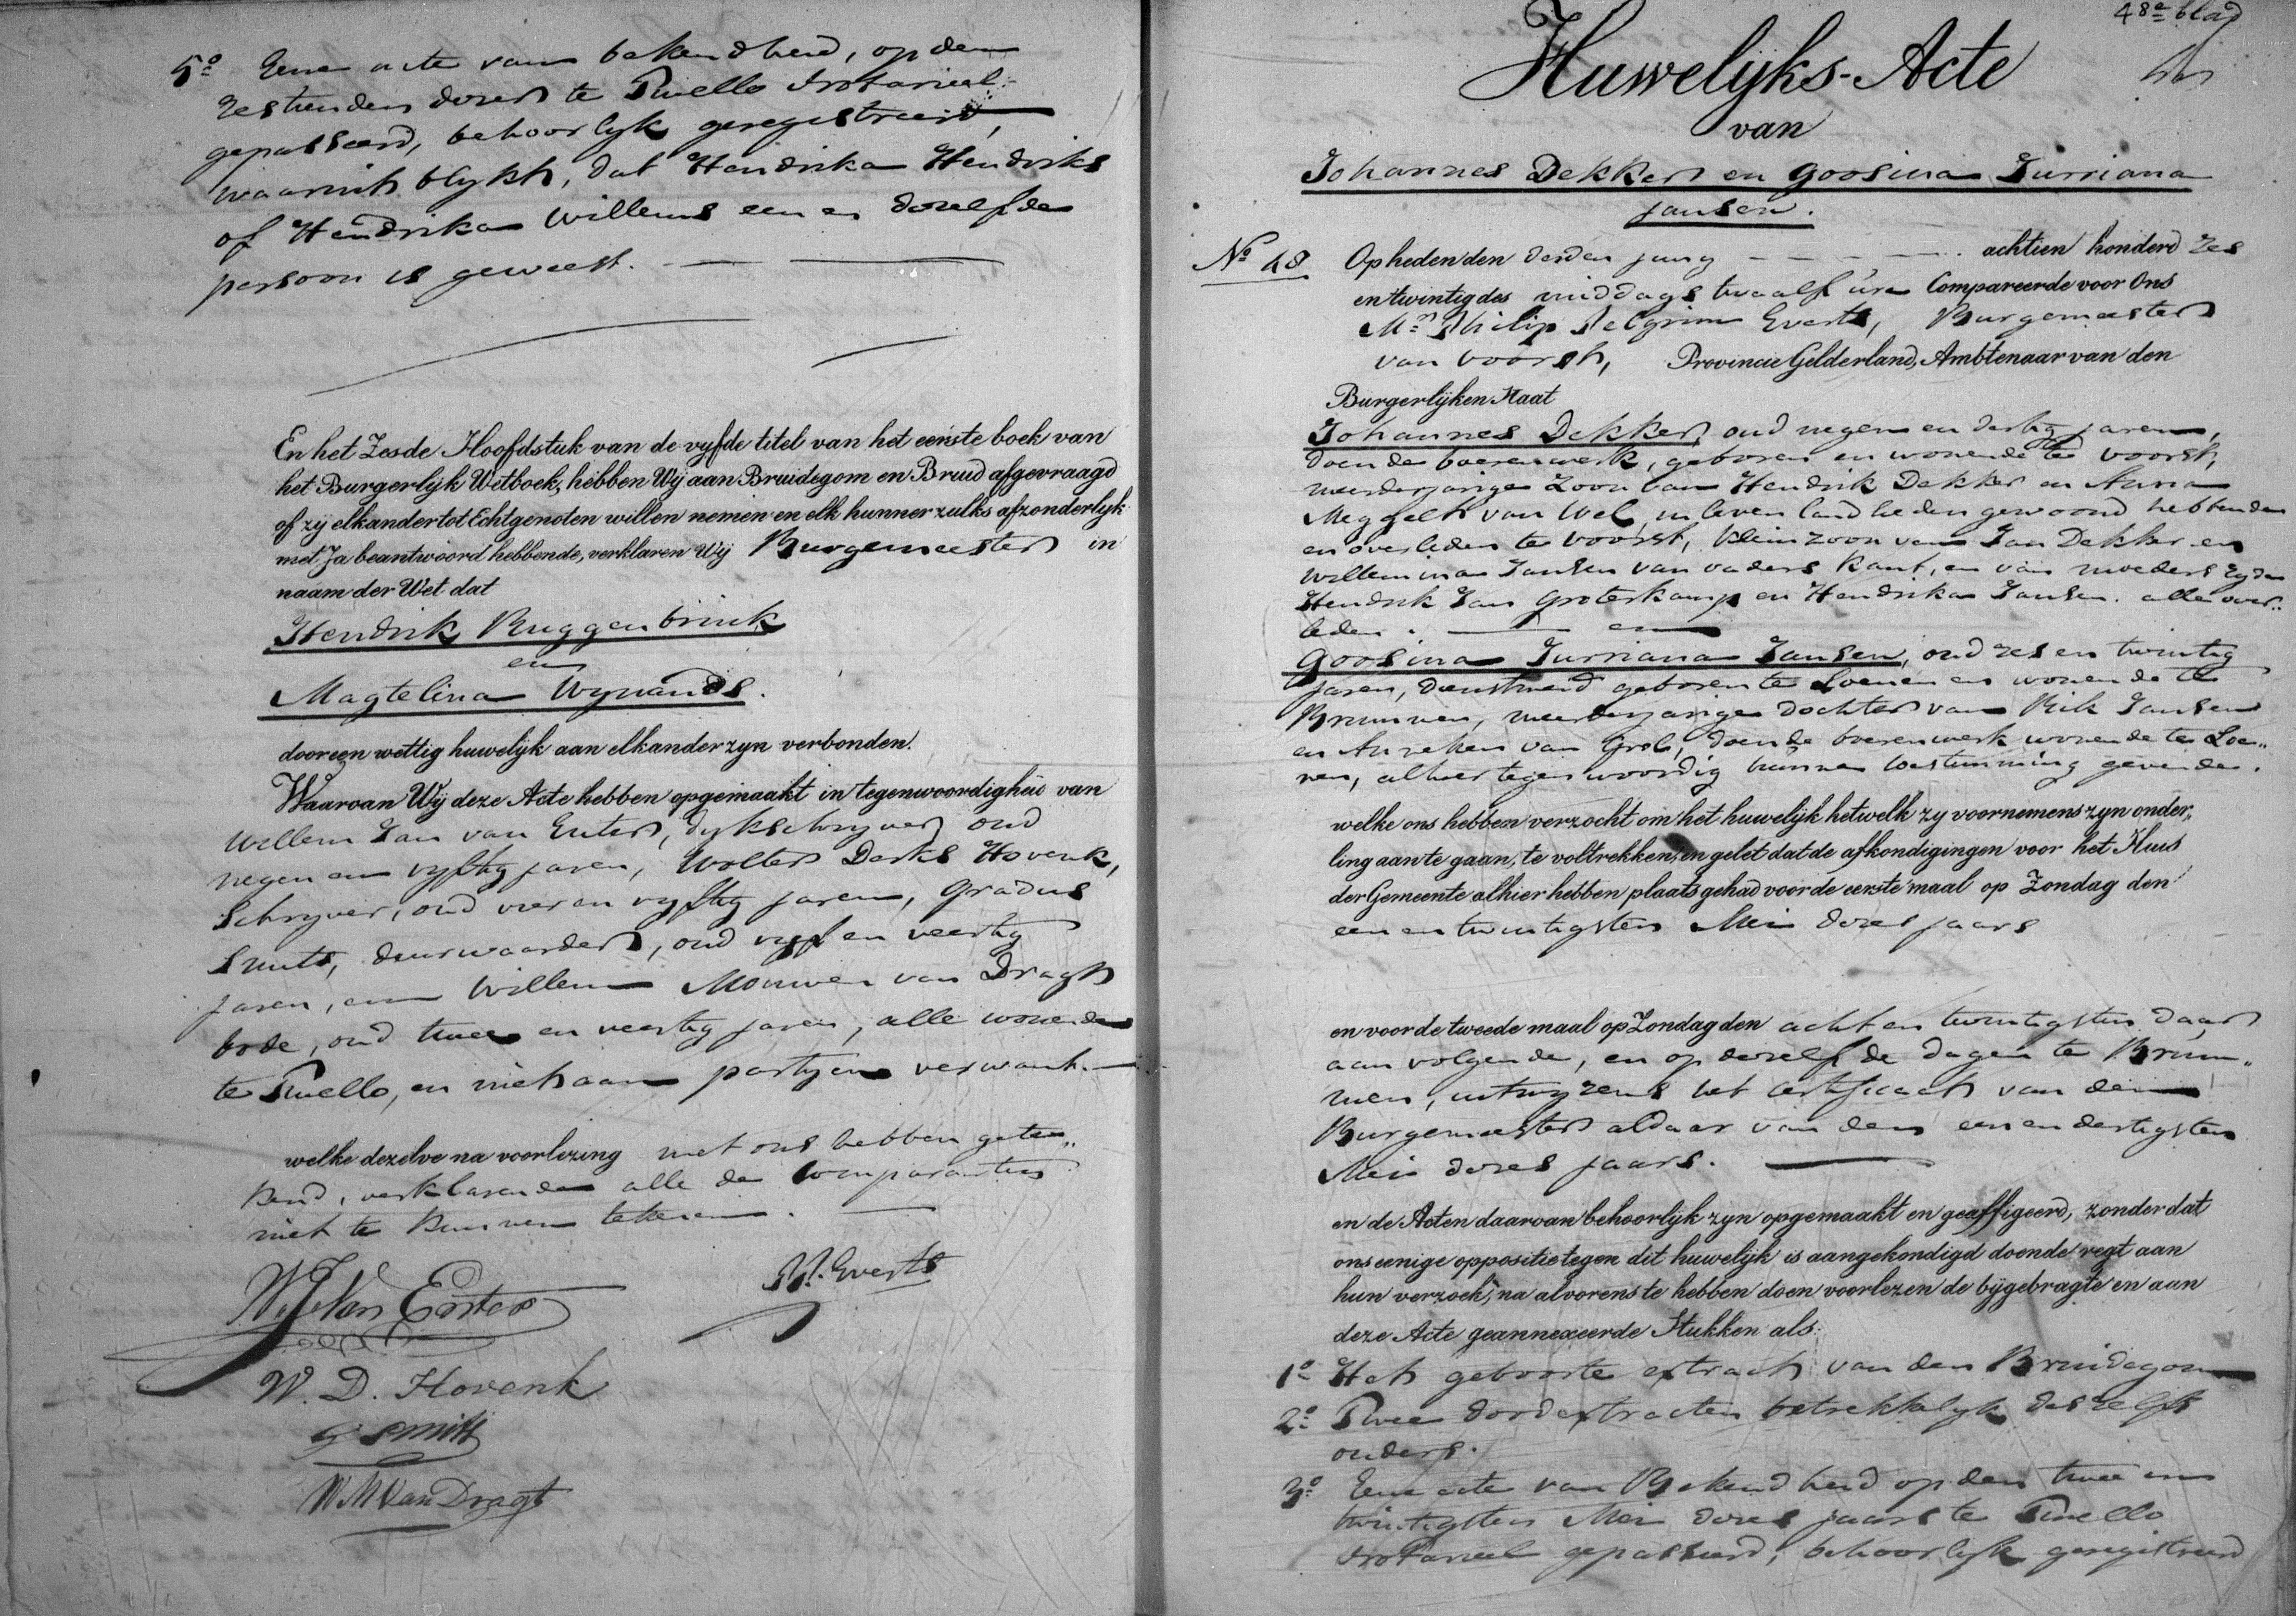 5º Eene acte van bekendheid, op den
zestienden dezer te Twello Notarieel
gepasseerd, behoorlyk geregistreerd,
waaruit blykt, dat Hendrika Hendriks
of Hendrika Willems een en dezelfde
persoon is geweest.
En het Zesde Hoofdstuk van de vyfde titel van het eerste boek van
het Burgerlijk Wetboek, hebben Wij aan Bruidegom en Bruid afgevraagd
of zij elkander tot Echtgenoten willen nemen en elk hunner zulks afzonderlyk
met Ja beantwoord hebbende, verklaren Wij Burgemeester in
naam der Wet dat
Hendrik Ruggenbrink
en
Magtelina Wynands.
door een wettig huwelijk aan elkander zyn verbonden.
Waarvan Wij deze Acte hebben opgemaakt in tegenwoordigheid van
Willem Jan van Enter, dykschryver oud
negen en vyftig jaren, Wolter Derks Hovenk,
Schryver, oud vier en vyftig jaren, Gradus
Smits, deurwaarder, oud vyf en veertig
jaren, en Willem Mouwen van Dragt
bode, oud twee en veertig jaren, alle wonende
te Twello, en niet aan partyen verwant.
welke dezelve na voorlezing met ons hebben getee„
kend, verklarende alle de comparanten
niet te kunnen tekenen.
W.J. Van Enter
P. Everts
W. D. Hovenk
G Smits
W M Van Dragt
48e blad
Huwelijks-Acte
van
Johannes Dekker en Goosina Jurriana
Jansen.
Nº 48 Op heden den derden juny achtien honderd zes
en twintig des middags twaalf ure Compareerde voor Ons
Mr. Philip Pelgrim Everts, Burgemeester
van Voorst, Provincie Gelderland, Ambtenaar van den
Burgerlijken Staat
Johannes Dekker, oud negen en dertig jaren,
doende boerenwerk, geboren en wonende te Voorst,
meerderjarige Zoon van Hendrik Dekker en Anna
Meggelt van Wel, in leven landlieden gewoond hebbende
en overleden te Voorst, kleinzoon van Jan Dekker en
Willemina Jansen van vaders kant, en van moeders zyde
Hendrik Jan Groterkamp en Hendrika Jansen. alle over„
leden. en
Goosina Jurriana Jansen, oud zes en twintig
jaren, dienstmeid geboren te Loenen en wonende te
Brummen, meerderjarige dochter van Rik Jansen
en Anneken van Grol, doende boerenwerk wonende te Loe„
nen, alhier tegenwoordig hunne toestemming gevende.
welke ons hebben verzocht om het huwelijk hetwelk zy voornemens zyn onder„
ling aan te gaan, te voltrekken, en gelet dat de afkondigingen voor het Huis
der Gemeente alhier hebben plaats gehad voor de eerste maal op Zondag den
een en twintigsten Mei dezes jaars
en voor de tweede maal op Zondag den acht en twintigsten daar
aan volgende, en op dezelfde dagen te Brum„
men, uitwyzens het certificaat van den
Burgemeester aldaar van den een en dertigsten
Mei dezes jaars.
en de Acten daarvan behoorlijk zyn opgemaakt en geaffigeerd, zonder dat
ons eenige oppositie tegen dit huwelijk is aangekondigd doende regt aan
hun verzoek, na alvorens te hebben doen voorlezen de bijgebragte en aan
deze Acte geannexeerde Stukken als:
1º Het geboorte extract van den Bruidegom
2º Twee dood extracten betrekkelyk deszelfs
ouders.
3º Eene acte van Bekendheid op den twee en
twintigsten Mei dezes jaars te Twello
Notarieel gepasseerd, behoorlyk geregistreerd